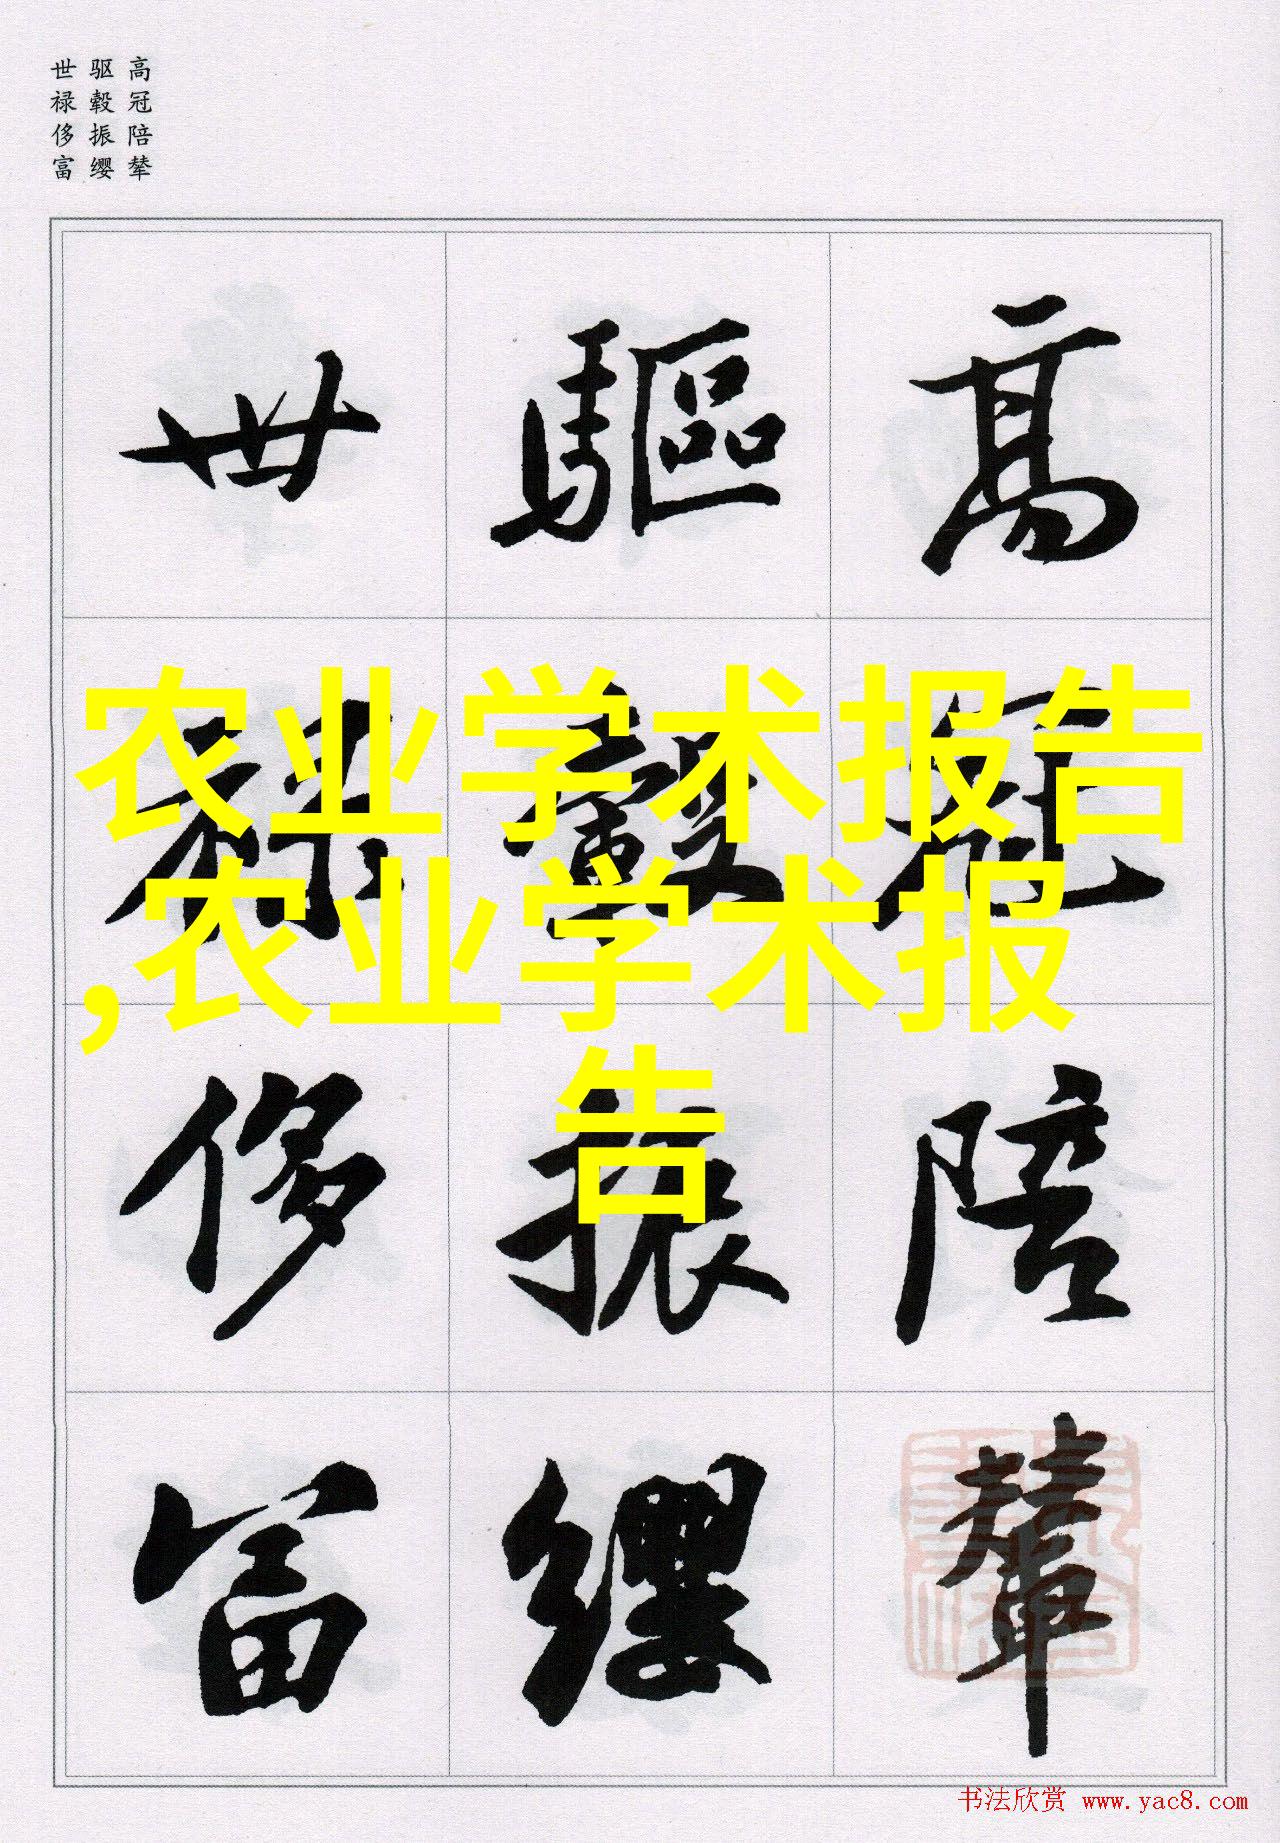 高冠陪辇
驱毂振缨
世禄侈富
高冠陪輦
驅轂振纓
世禄侈富
农业学术报告
,农业学术报
告
书法欣赏 www.yac8.com